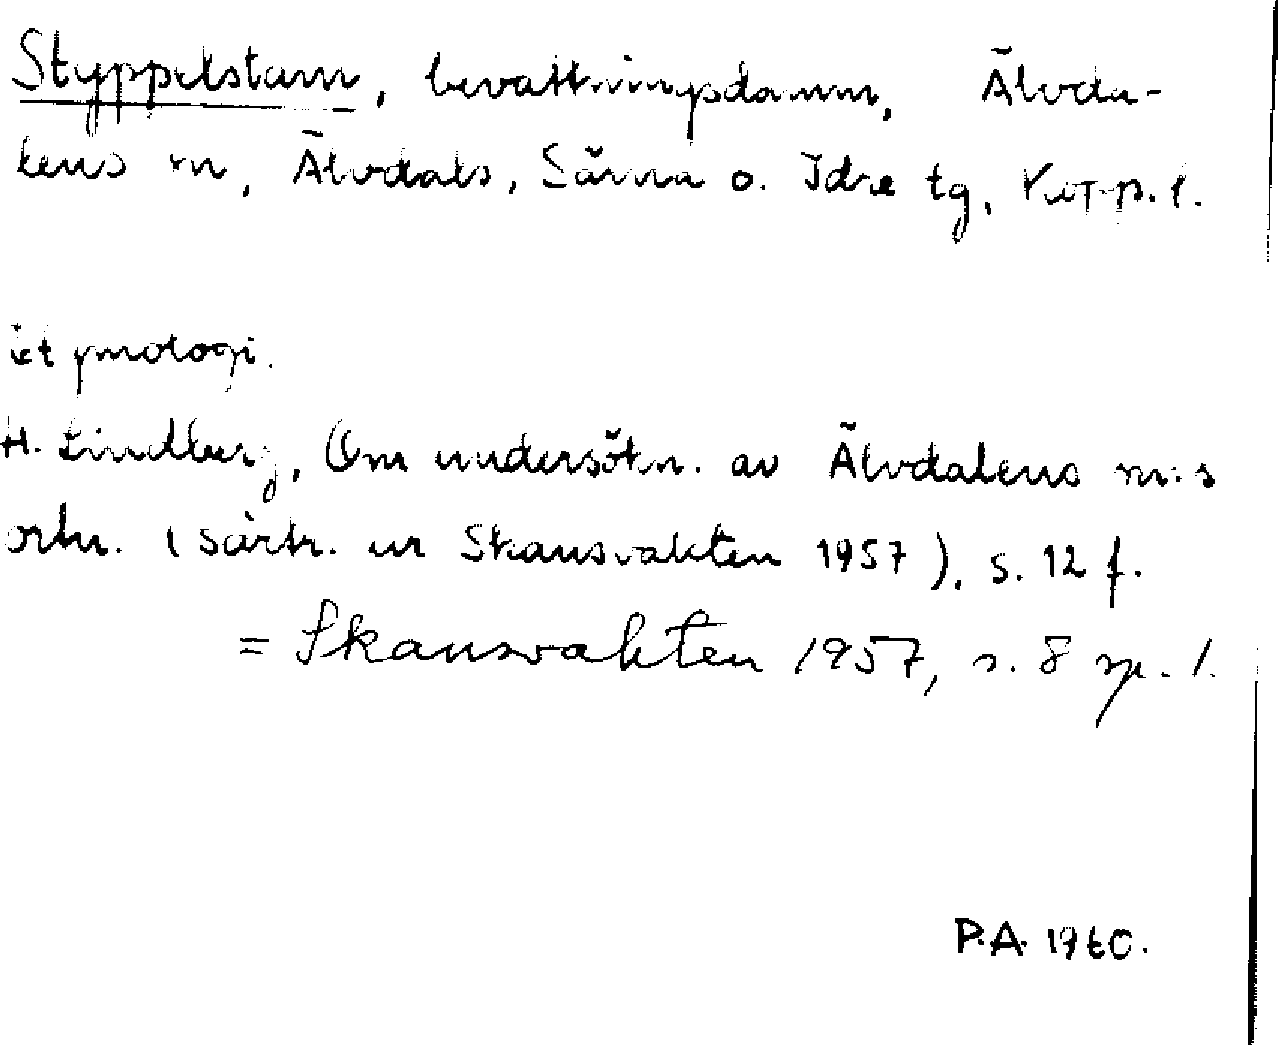 Styppelstam, bevattningsdamm, Älvda-
lens sn, Älvdals, Särna o. Idre tg, Kopp. l.
etymologi.
H. Lindberg, Om undersökn. av Älvdalens sn:s
ortn. (särtr. ur Skansvakten 1957), s. 12 f.
= Skansvakten 1957, s. 8 sp. 1.
P.A. 1960.